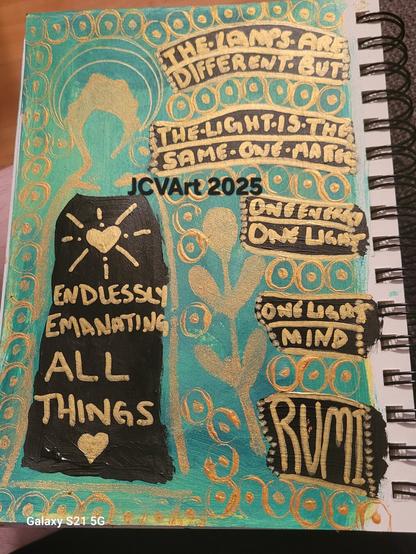 THE·LAMPS·ARE
DIFFERENT·BUT
THE·LIGHT·IS·THE
SAME·ONE·MATTER
JCVArt 2025
ONE ENERGY
ONE LIGHT
ENDLESSLY
EMANATING
ALL
THINGS
ONE LIGHT
MIND
RUMI
Galaxy S21 5G